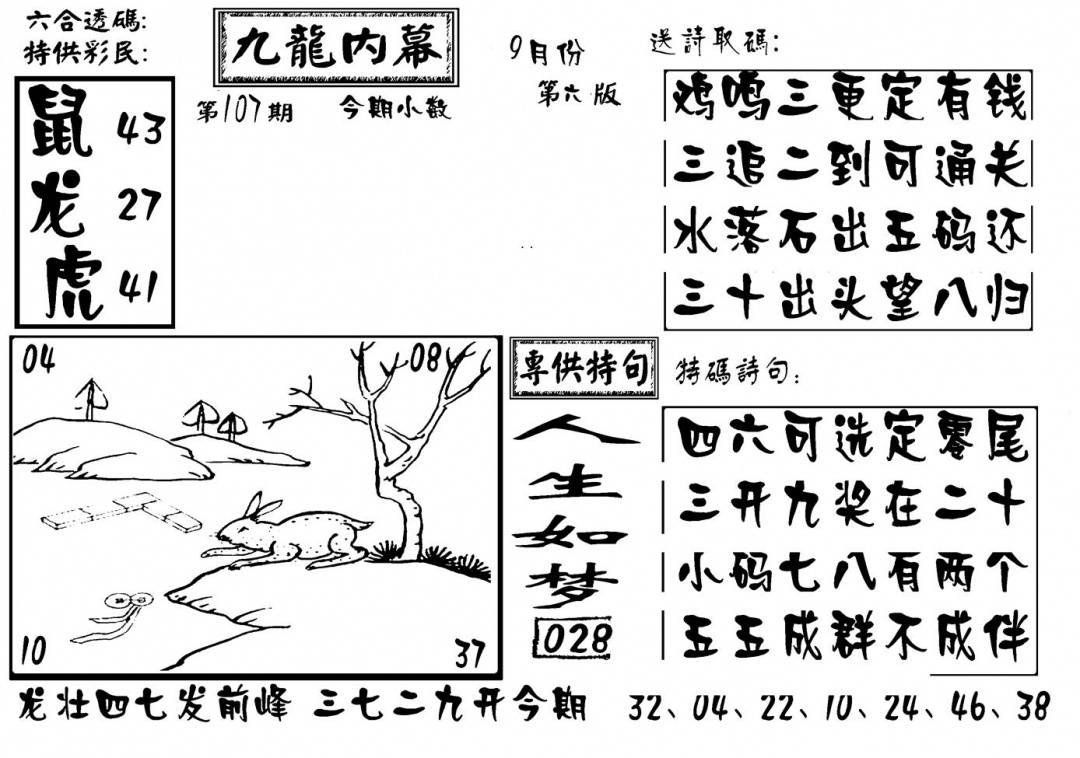 六合透碼:
特供彩民:
鼠 43
龙 27
虎 41
九龍内幕
第107期 今期小数
9月份
第六版
送詩取碼:
鸡鸣三更定有钱
三追二到可通关
水落石出五码还
三十出头望八归
04 08
10 37
專供特句
人生如梦
028
特碼詩句:
四六可选定零尾
三开九奖在二十
小码七八有两个
五五成群不成伴
龙壮四七发前峰 三七二九开今期 32、04、22、10、24、46、38